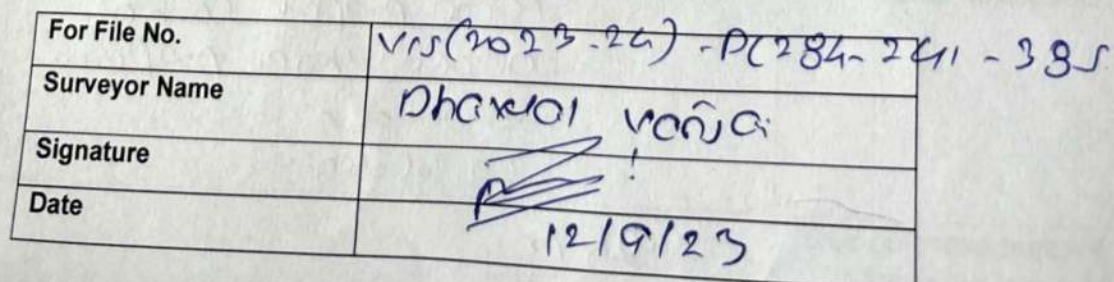 For File No. VIS(2023-24)-PC284-241-385
Surveyor Name Dhaval
Signature
Date 12/9/23